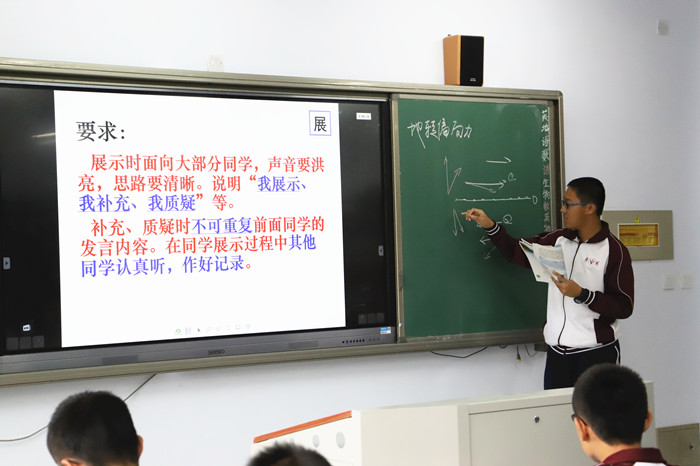 要求：
展
展示时面向大部分同学，声音要洪
亮，思路要清晰。说明“我展示、
我补充、我质疑”等。
补充、质疑时不可重复前面同学的
发言内容。在同学展示过程中其他
同学认真听，作好记录。
地转偏向力